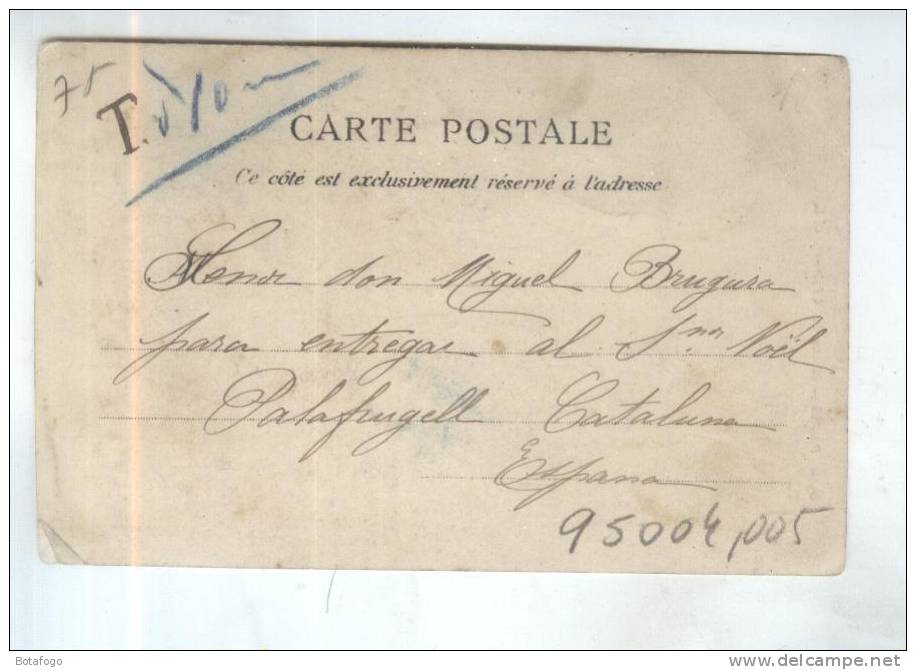 75
T. 5/10
CARTE POSTALE
Ce côté est exclusivement réservé à l'adresse
Senor don Miguel Brugura
para entregar al Snor Noël
Palafrugell Cataluna
Espana
95004,005
Botafogo
www.delcampe.net